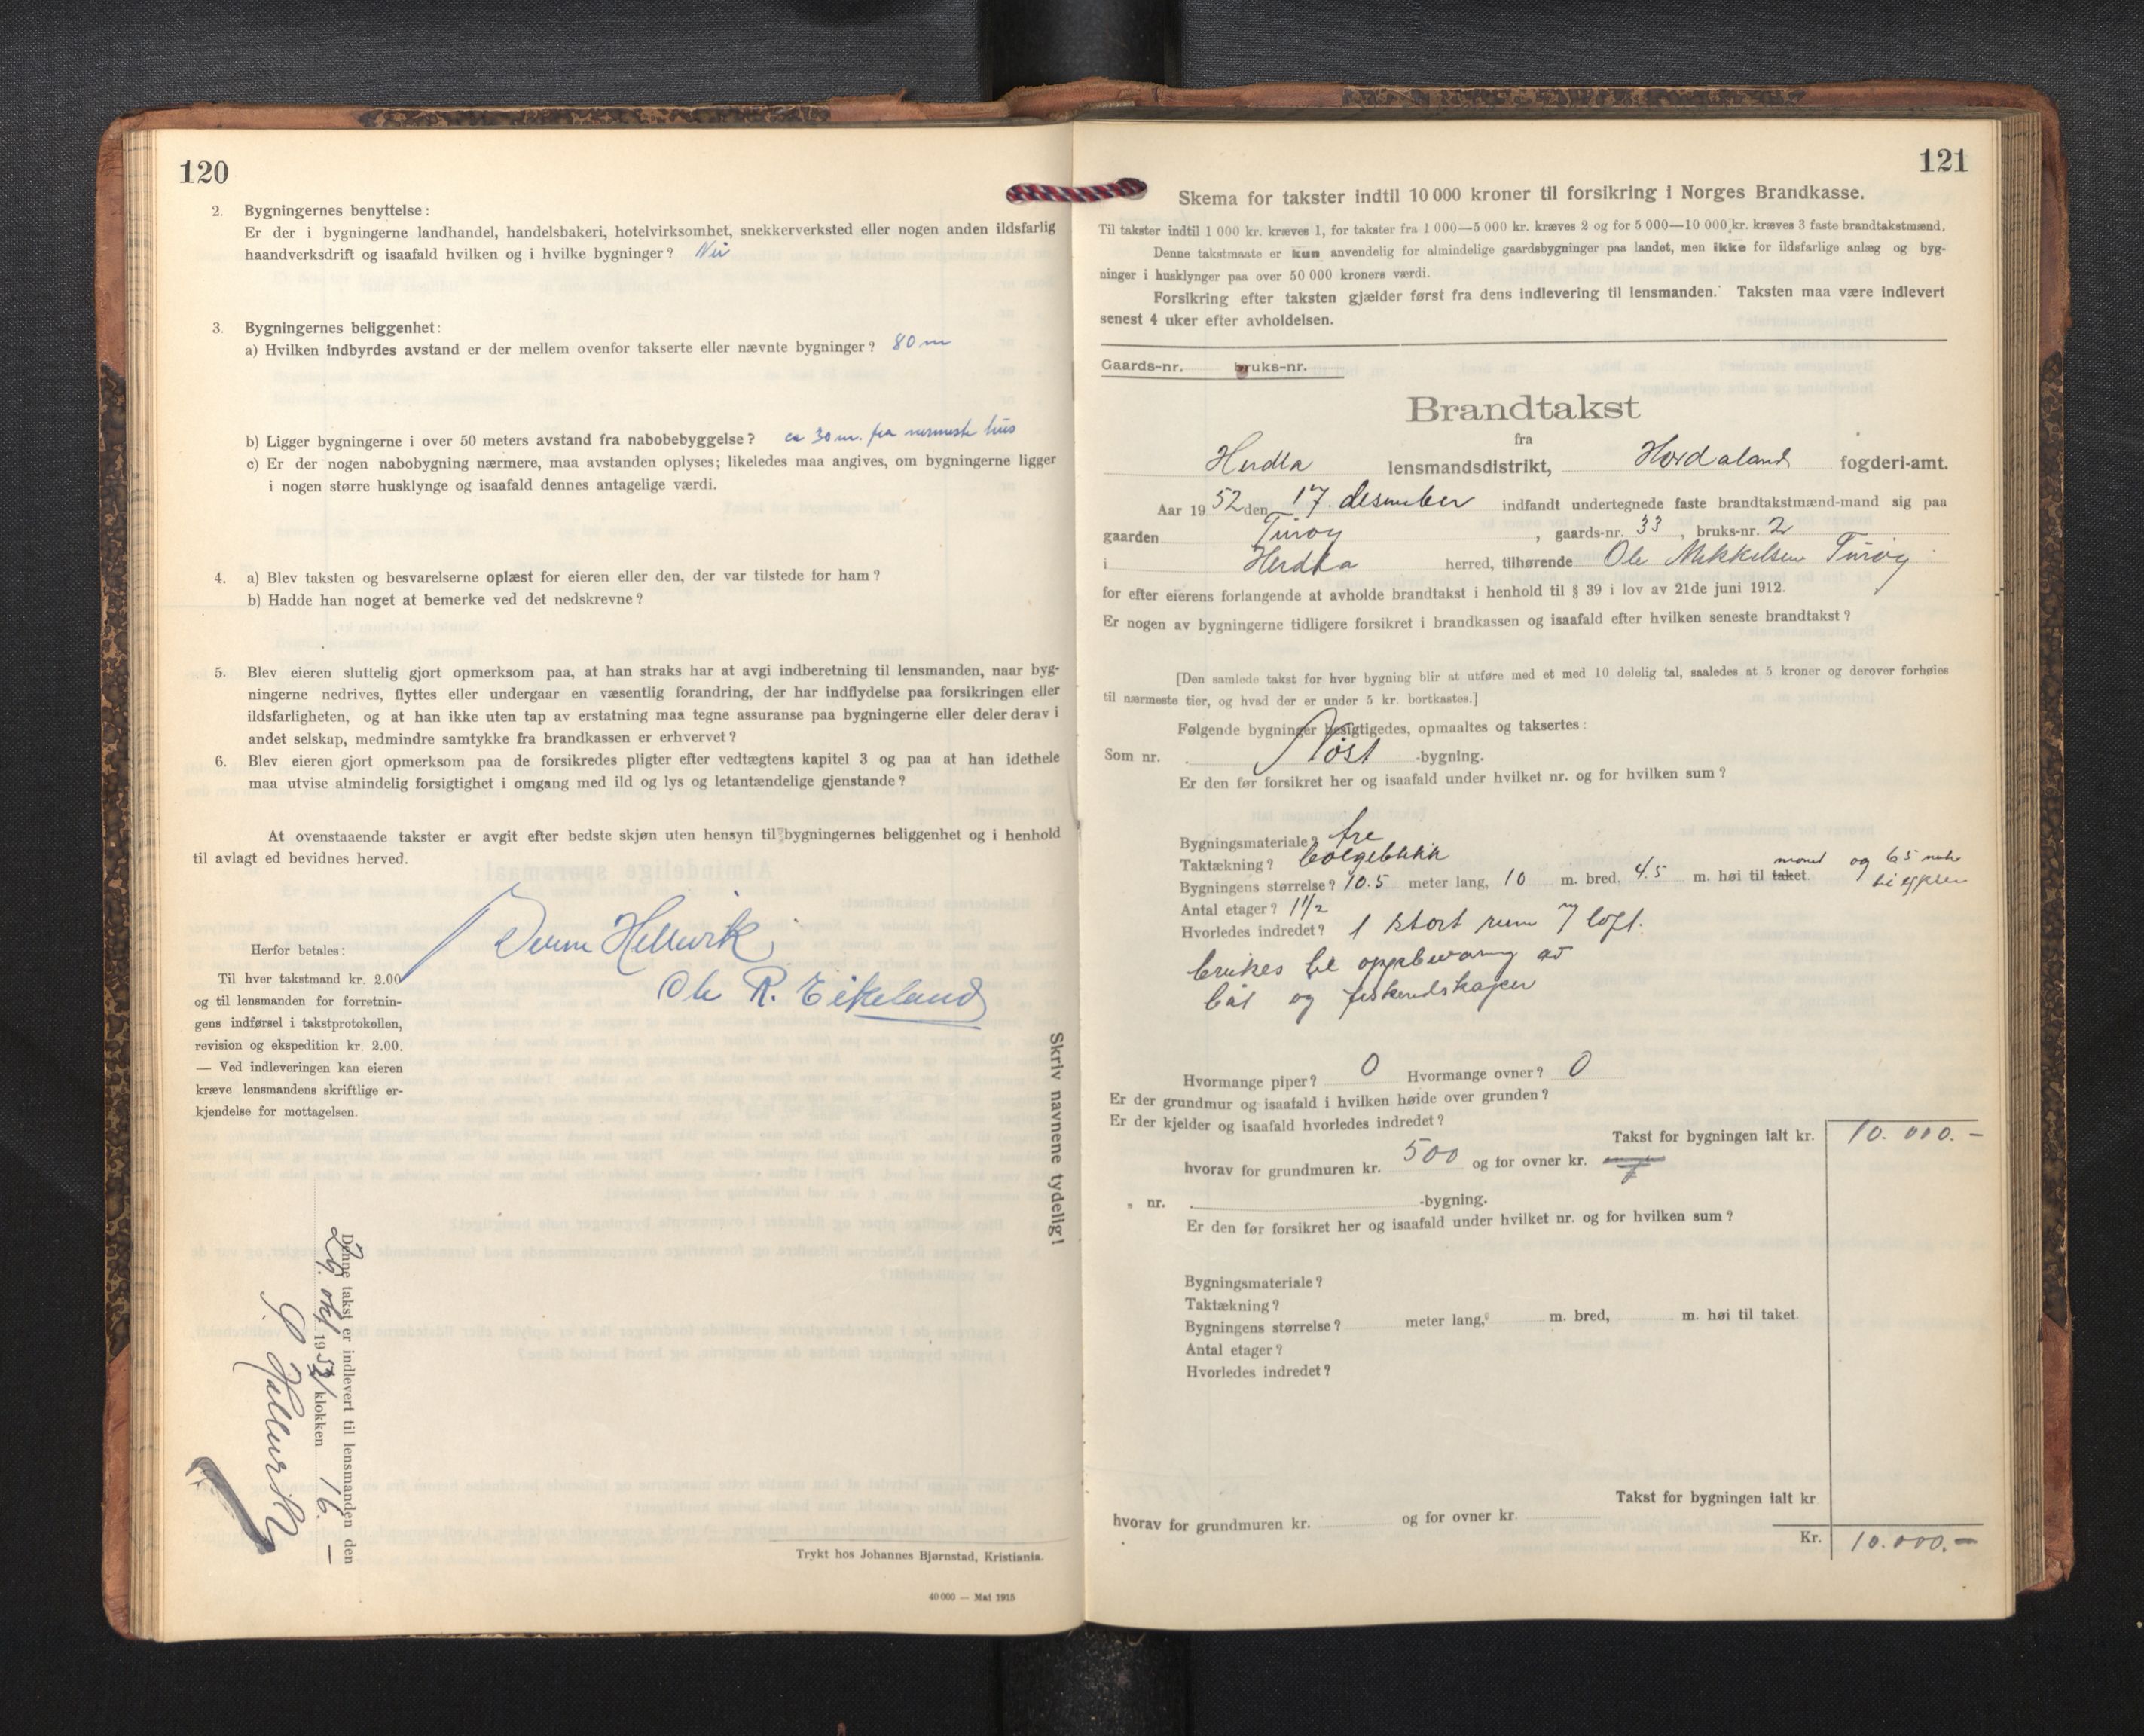 120
2. Bygningernes benyttelse:
Er der i bygningerne landhandel, handelsbakeri, hotelvirksomhet, snekkerverksted eller nogen anden ildsfarlig
haandverksdrift og isaafald hvilken og i hvilke bygninger? Nei
3. Bygningernes beliggenhet:
a) Hvilken indbyrdes avstand er der mellem ovenfor takserte eller nævnte bygninger? 80 m
b) Ligger bygningerne i over 50 meters avstand fra nabobebyggelse? ca 30 m. fra nermeste hus
c) Er der nogen nabobygning nærmere, maa avstanden oplyses; likeledes maa angives, om bygningerne ligger
i nogen større husklynge og isaafald dennes antagelige værdi.
4. a) Blev taksten og besvarelserne oplæst for eieren eller den, der var tilstede for ham?
b) Hadde han noget at bemerke ved det nedskrevne?
5. Blev eieren sluttelig gjort opmerksom paa, at han straks har at avgi indberetning til lensmanden, naar byg-
ningerne nedrives, flyttes eller undergaar en væsentlig forandring, der har indflydelse paa forsikringen eller
ildsfarligheten, og at han ikke uten tap av erstatning maa tegne assuranse paa bygningerne eller deler derav i
andet selskap, medmindre samtykke fra brandkassen er erhvervet?
6. Blev eieren gjort opmerksom paa de forsikredes pligter efter vedtægtens kapitel 3 og paa at han idethele
maa utvise almindelig forsigtighet i omgang med ild og lys og letantændelige gjenstande?
At ovenstaaende takster er avgit efter bedste skjøn uten hensyn til bygningernes beliggenhet og i henhold
til avlagt ed bevidnes herved.
Hellevik
Ole R. Eikeland
Herfor betales:
Til hver takstmand kr. 2.00
og til lensmanden for forretnin-
gens indførsel i takstprotokollen,
revision og ekspedition kr. 2.00.
— Ved indleveringen kan eieren
kræve lensmandens skriftlige er-
kjendelse for mottagelsen.
Skriv navnene tydelig!
Denne takst er indlevert til lensmanden den
29. okt 1952 klokken 16. —
Trykt hos Johannes Bjørnstad, Kristiania.
40 000 — Mai 1915
121
Skema for takster indtil 10 000 kroner til forsikring i Norges Brandkasse.
Til takster indtil 1 000 kr. kræves 1, for takster fra 1 000—5 000 kr. kræves 2 og for 5 000—10 000 kr. kræves 3 faste brandtakstmænd.
Denne takstmaate er kun anvendelig for almindelige gaardsbygninger paa landet, men ikke for ildsfarlige anlæg og byg-
ninger i husklynger paa over 50 000 kroners værdi.
Forsikring efter taksten gjælder først fra dens indlevering til lensmanden. Taksten maa være indlevert
senest 4 uker efter avholdelsen.
Gaards-nr. bruks-nr.
Brandtakst
fra
Herdla lensmandsdistrikt, Hordaland fogderi-amt.
Aar 1952 den 17. desember indfandt undertegnede faste brandtakstmænd-mand sig paa
gaarden Turøy , gaards-nr. 33 , bruks-nr. 2
i Herdla herred, tilhørende Ole Mikkelsen Turøy
for efter eierens forlangende at avholde brandtakst i henhold til § 39 i lov av 21de juni 1912.
Er nogen av bygningerne tidligere forsikret i brandkassen og isaafald efter hvilken seneste brandtakst?
[Den samlede takst for hver bygning blir at utføre med et med 10 delelig tal, saaledes at 5 kroner og derover forhøies
til nærmeste tier, og hvad der er under 5 kr. bortkastes.]
Følgende bygninger besigtigedes, opmaaltes og taksertes:
Som nr. Nøst -bygning.
Er den før forsikret her og isaafald under hvilket nr. og for hvilken sum?
Bygningsmateriale? tre
Taktækning? bølgeblikk
Bygningens størrelse? 10.5 meter lang, 10 m. bred, 4.5 m. høi til taket. mønet og 6.5 meter
Antal etager? 1 1/2
Hvorledes indredet? 1 stort rum og loft.
brukes til oppbevaring av
båt og fiskeredskaper
Hvormange piper? 0 Hvormange ovner? 0
Er der grundmur og isaafald i hvilken høide over grunden?
Er der kjelder og isaafald hvorledes indredet?
Takst for bygningen ialt kr. 10.000.-
hvorav for grundmuren kr. 500 og for ovner kr.
„ nr. -bygning.
Er den før forsikret her og isaafald under hvilket nr. og for hvilken sum?
Bygningsmateriale?
Taktækning?
Bygningens størrelse? meter lang, m. bred, m. høi til taket.
Antal etager?
Hvorledes indredet?
Takst for bygningen ialt kr
hvorav for grundmuren kr. og for ovner kr.
Kr. 10.000.-